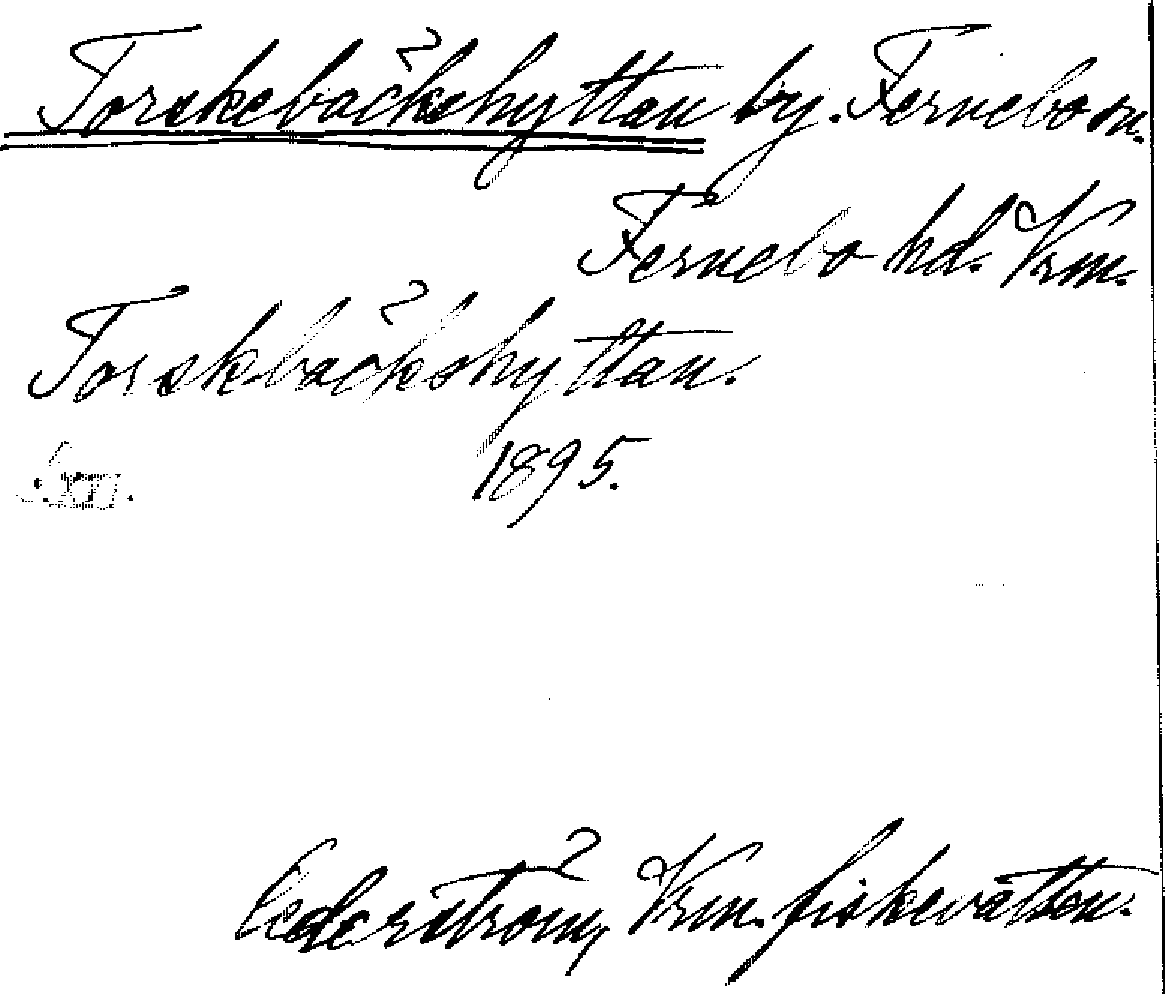 Torskebäckshyttan by. Fernebo sn.
Fernebo hd. Vrm.
Torskbäckshyttan.
1895.
Cederström, Vrm. fiskevatten.